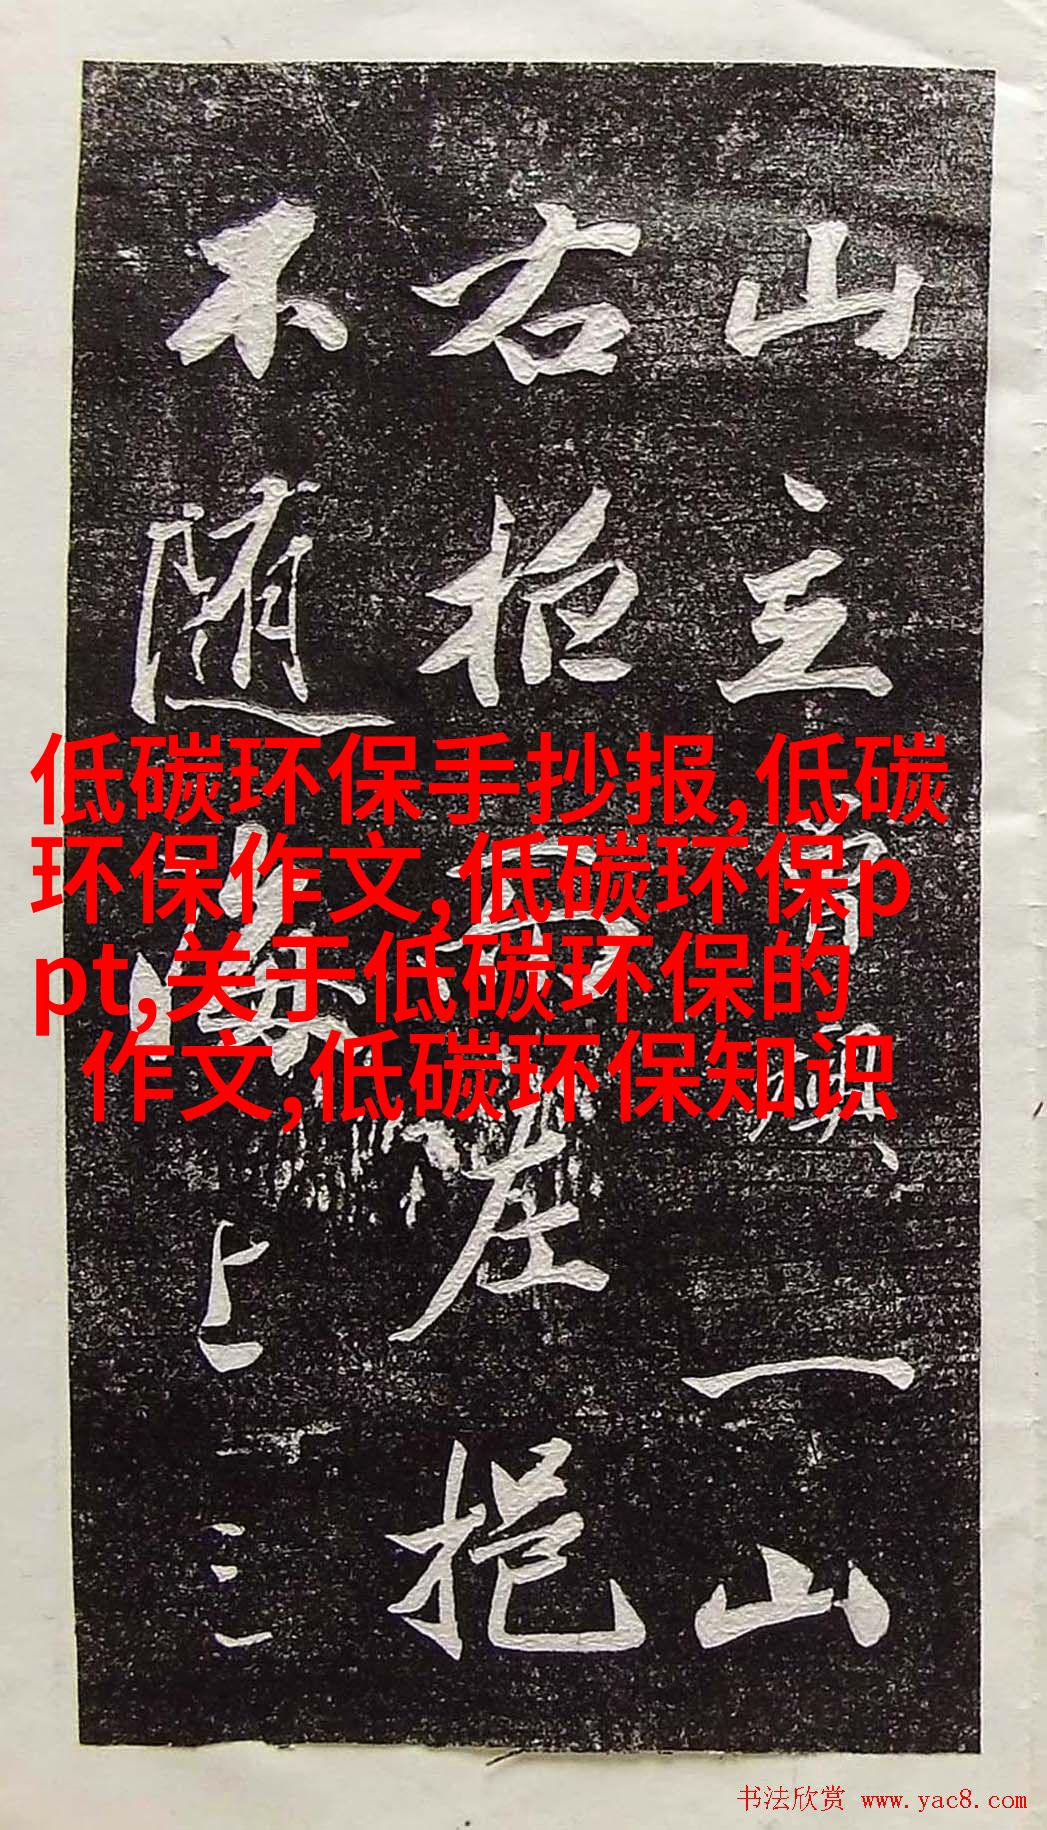 低碳环保手抄报,低碳
环保作文,低碳环保p
pt,关于低碳环保的
作文,低碳环保知识
山主一山
右挹
不随海上三
书法欣赏 www.yac8.com